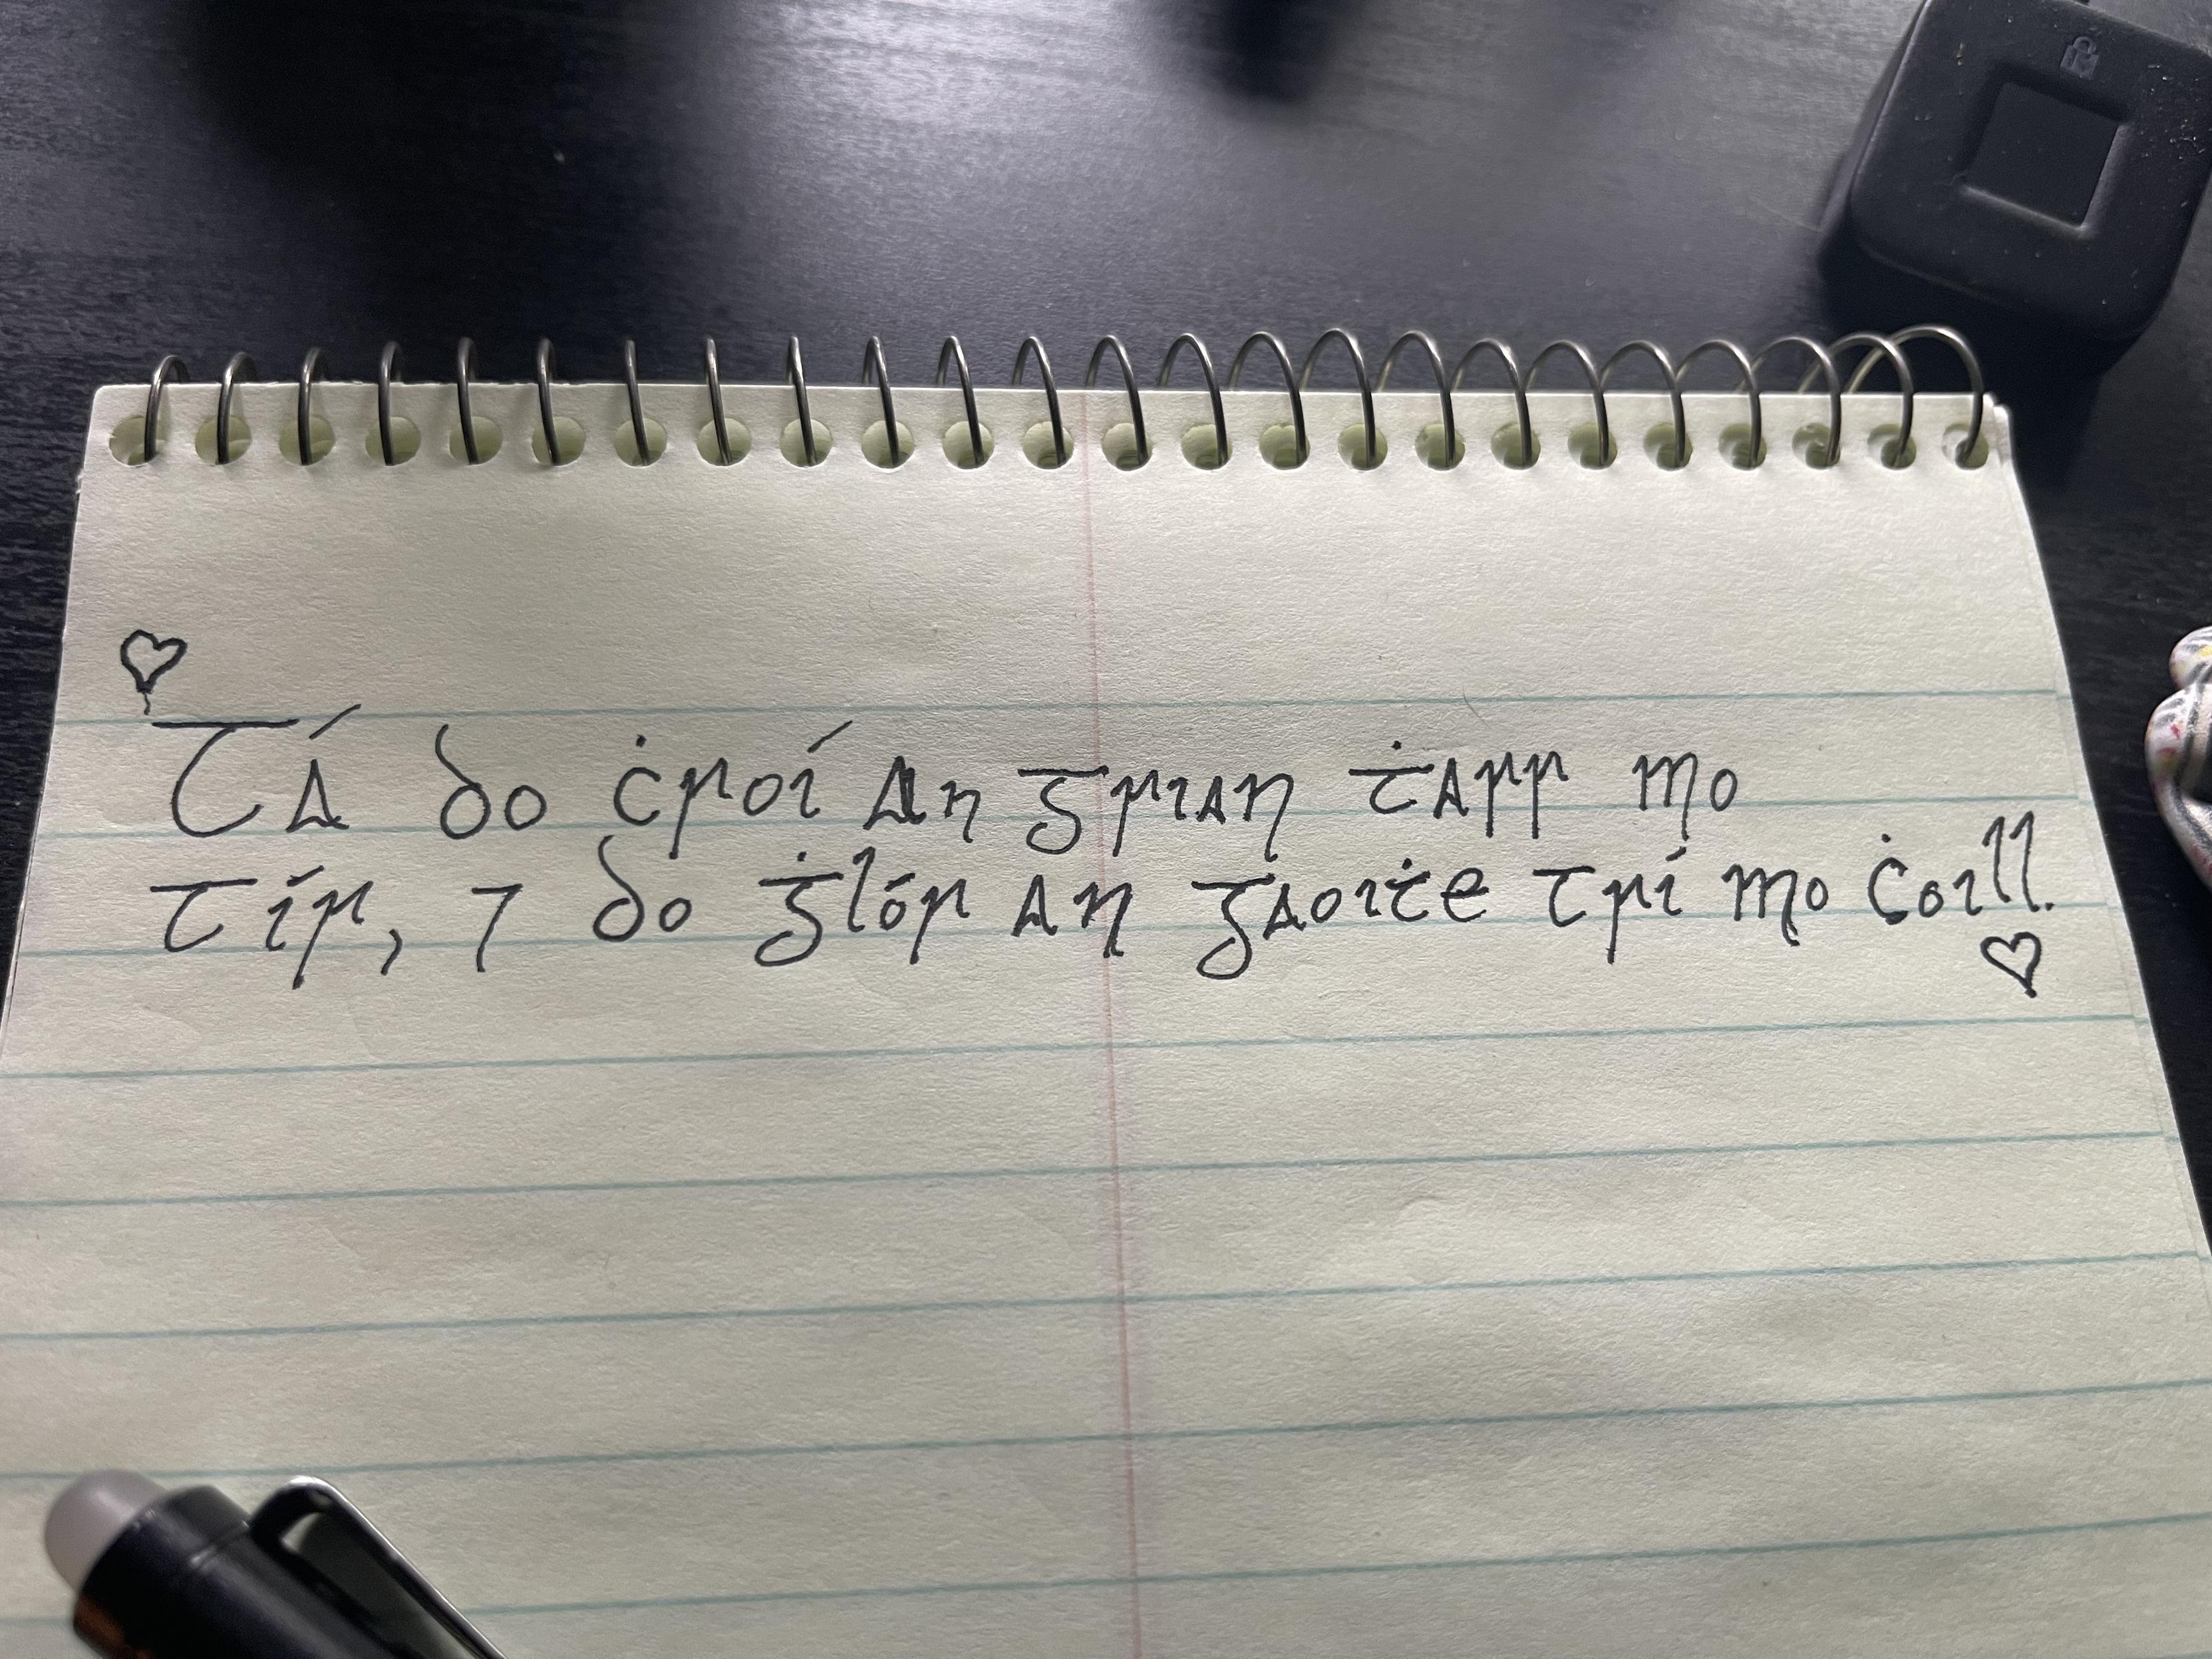 Tá do ċroí an grian ṫarr mo
tír, ⁊ do ġlór an gaoiṫe trí mo ċoill.